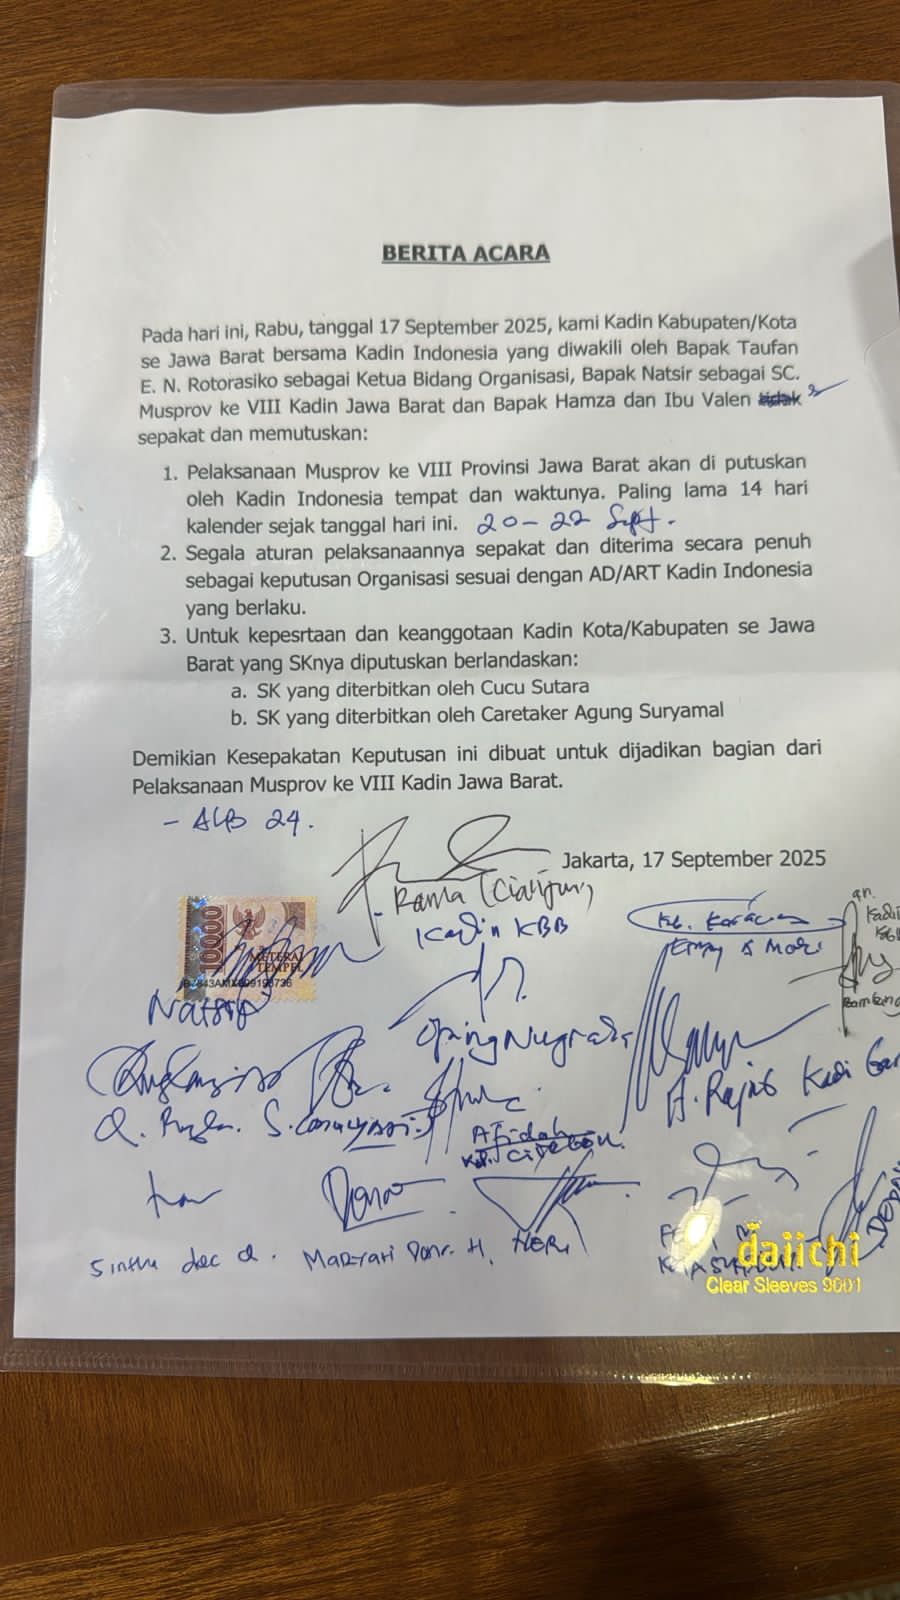 BERITA ACARA
Pada hari ini, Rabu, tanggal 17 September 2025, kami Kadin Kabupaten/Kota
se Jawa Barat bersama Kadin Indonesia yang diwakili oleh Bapak Taufan
E. N. Rotorasiko sebagai Ketua Bidang Organisasi, Bapak Natsir sebagai SC.
Musprov ke VIII Kadin Jawa Barat dan Bapak Hamza dan Ibu Valen tidak
sepakat dan memutuskan:
1. Pelaksanaan Musprov ke VIII Provinsi Jawa Barat akan di putuskan
oleh Kadin Indonesia tempat dan waktunya. Paling lama 14 hari
kalender sejak tanggal hari ini. 20-22 Sept.
2. Segala aturan pelaksanaannya sepakat dan diterima secara penuh
sebagai keputusan Organisasi sesuai dengan AD/ART Kadin Indonesia
yang berlaku.
3. Untuk kepesrtaan dan keanggotaan Kadin Kota/Kabupaten se Jawa
Barat yang SKnya diputuskan berlandaskan:
a. SK yang diterbitkan oleh Cucu Sutara
b. SK yang diterbitkan oleh Caretaker Agung Suryamal
Demikian Kesepakatan Keputusan ini dibuat untuk dijadikan bagian dari
Pelaksanaan Musprov ke VIII Kadin Jawa Barat.
- ALB 24.
Jakarta, 17 September 2025
Rama (Cianjur)
Kadin KBB
10000
METERAI
TEMPEL
Natsir
Oping Nugraha
A. Rajab Kadi Gar
Afidah
Cirebon
Maryati Danr. H.
HERI
daiichi
Clear Sleeves 9001